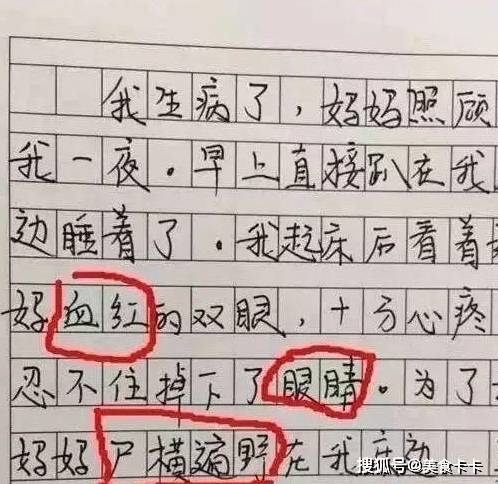 我生病了，妈妈照顾
我一夜。早上直接趴在我
边睡着了。我起床后看着
好血红的双眼，十方心疼
忍不住掉下了眼睛。为了
妈妈尸横遍野在我床边
搜狐号@美食卡卡